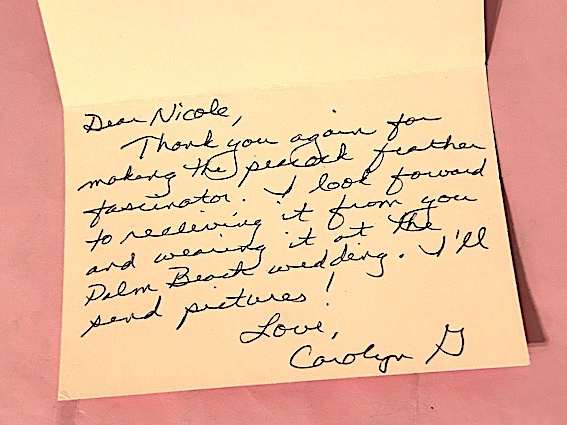 Dear Nicole,
Thank you again for
making the peacock feather
fascinator. I look forward
to receiving it from you
and wearing it at the
Palm Beach wedding. I'll
send pictures!
Love,
Carolyn G